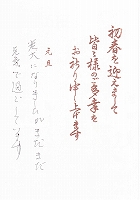 初春を迎えまして
皆々様のご多幸を
お祈り申し上げます
元旦
寒くなりましたがまだまだ
元気で過ごしています